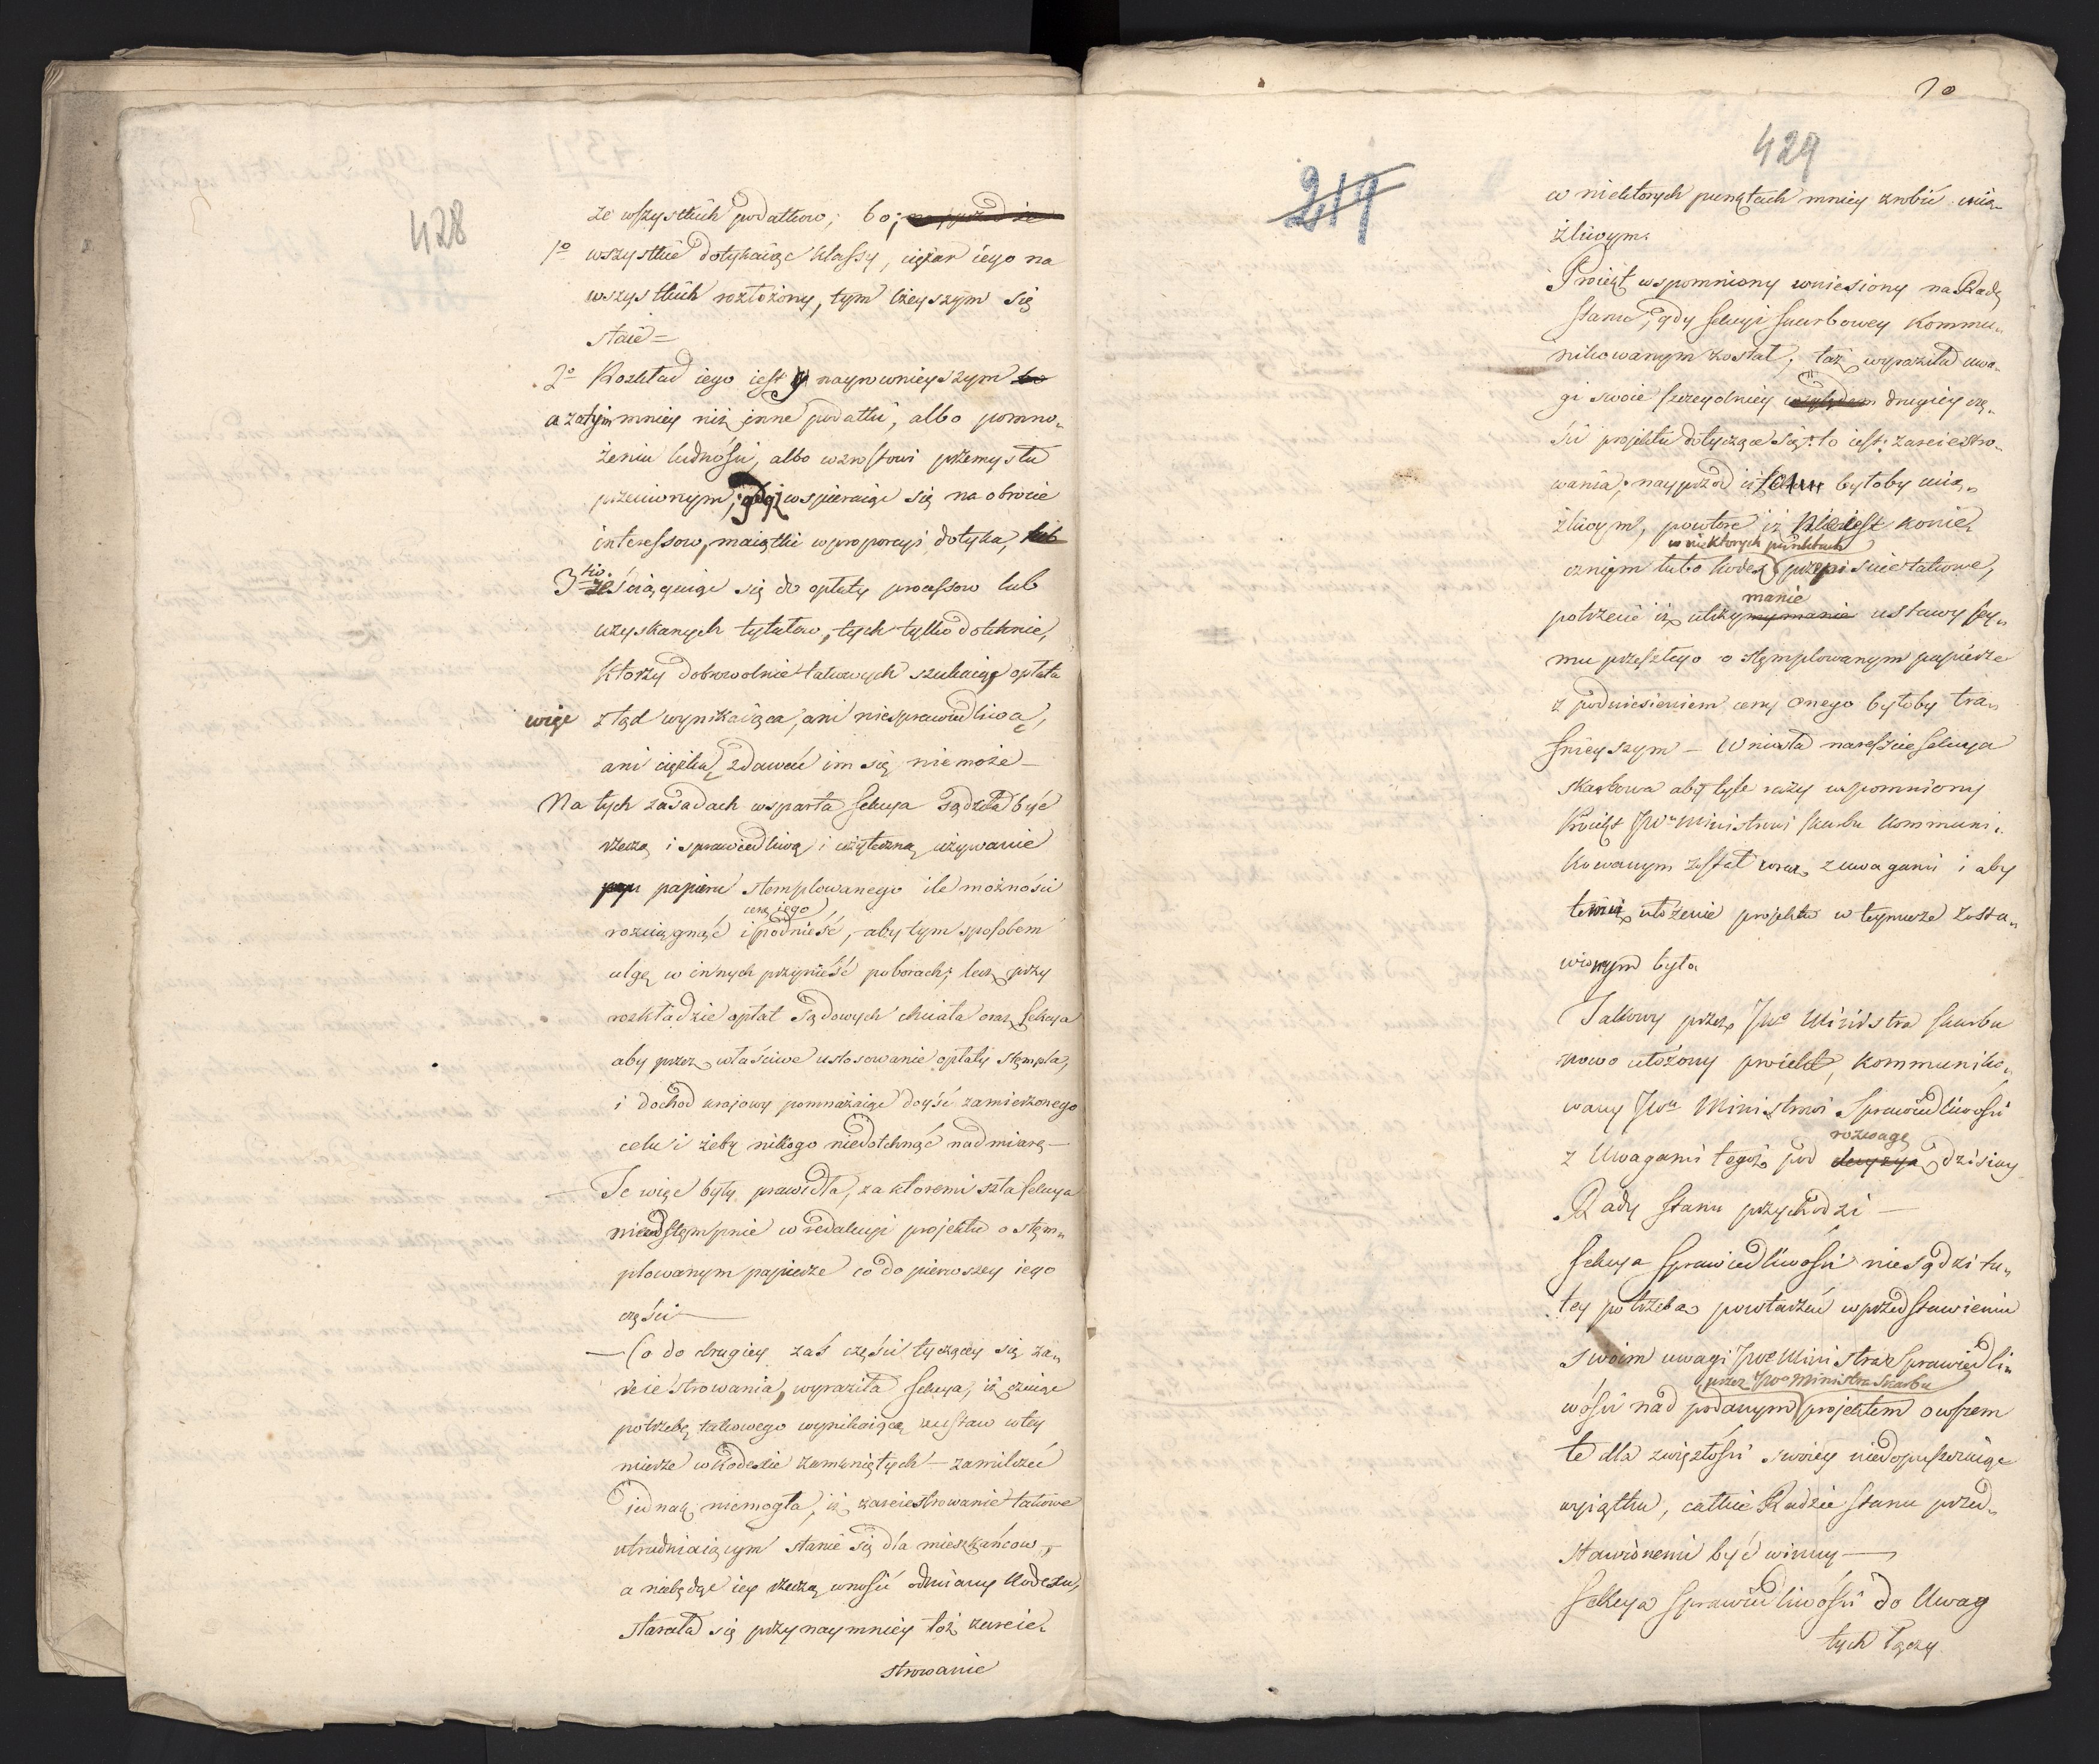 428
ze wszystkich podatkow, bo;
1o wszystkie dotykaiąc klassy, ciężar iego na
wszystkich rozłożony, tym lżeyszym się
staie =
2o Rozkład iego iest nayrownieyszym
a zatym mniey niż inne podatki, albo pomno-
żeniu ludności, albo wzrostowi przemysłu
przeciwnym; gdyż wspieraiąc się na obrocie
interessow, maiątki w proporcyi dotyka,
3tio. Ściągaiąc się do opłaty processow lub
uzyskanych tytułow, tych tylko dotknie,
ktorzy dobrowolnie takowych szukaią, opłata
więc ztąd wynikaiąca, ani niesprawiedliwą,
ani ciężką zdawać im się nie może —
Na tych zasadach wsparta Sekcya sądziła być
rzeczą i sprawiedliwą i użyteczną używanie
papieru stemplowanego ile możności
cenę iego
rozciągnąć i podnieść, aby tym sposobem
ulgę w innych przynieść poborach; lecz przy
rozkładzie opłat sądowych chciała oraz Sekcya
aby przez właściwe ustosowanie opłaty stempla,
i dochod kraiowy pomnażaiąc doyść zamierzonego
celu i żeby nikogo niedotchnąć nad miarę —
— Te więc były prawidła, za ktoremi szła Sekcya
w redakcyi projektu o stęm-
plowanym papierze co do pierwszey iego
części —
— Co do drugiey zaś części tyczącey się za-
reiestrowania, wyraziła Sekcya, iż czuiąc
potrzebę takowego wynikaiącą z ustaw w tey
mierze w Kodexie zamkniętych — zamilczeć
iednak niemogła, iż zareiestrowanie takowe
utrudniaiącym stanie się dla mieszkańcow,
a niebędąc iey rzeczą wnosić odmiany Kodexu,
starała się przynaymniey toż zareie-
strowanie
219
70
429
w niektorych punktach mniey zrobić ucią-
żliwym.
Proiekt wspomniony wniesiony na Radę
Stanu, gdy Sekcyi Skarbowey kommu-
nikowanym został, taż wyraziła uwa-
gi swoie szczegolniey drugiey czę-
ści projektu dotyczące się: to iest: zareiestro-
wania, nayprzod iż byłoby ucią-
żliwym, powtore iż nie iest koniec-
w niektorych punktach
cznym lubo kodex przepisuie takowe,
manie
potrzecie iż utrzy ustawy Sey-
mu przeszłego o stęmplowanym papierze
z podniesieniem ceny onego byłoby tra-
fnieyszym — Wniosła nareszcie Sekcya
Skarbowa aby tyle razy wspomniony
Proiekt JWu Ministrowi Skarbu kommuni-
kowanym został wraz z uwagami i aby
temuż ułożenie projektu w teymierze zosta-
wionym było.
Takowy przez JWo Ministra Skarbu
nowo ułożony proiekt, kommuniko-
wany JWu Ministrowi Sprawiedliwości
rozwagę
z Uwagami tegoż pod dzisiay
Rady Stanu przychodzi —
Sekcya Sprawiedliwości niesądzi tu-
tey potrzeba powtarzać w przedstawieniu
swoim uwagi JWo Ministra Sprawiedli-
przez JWo Ministra Skarbu
wości nad podanym projektem owszem
te dla zwięzłości swoiey niedopuszczaiąc
wyiątku, całkie Radzie Stanu przed-
stawionemi być winny —
Sekcya Sprawiedliwości do Uwag
tych łączy